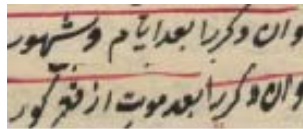 وان دگر را بعد ایام و شهور
وان دگر را بعد موت از قعر گور